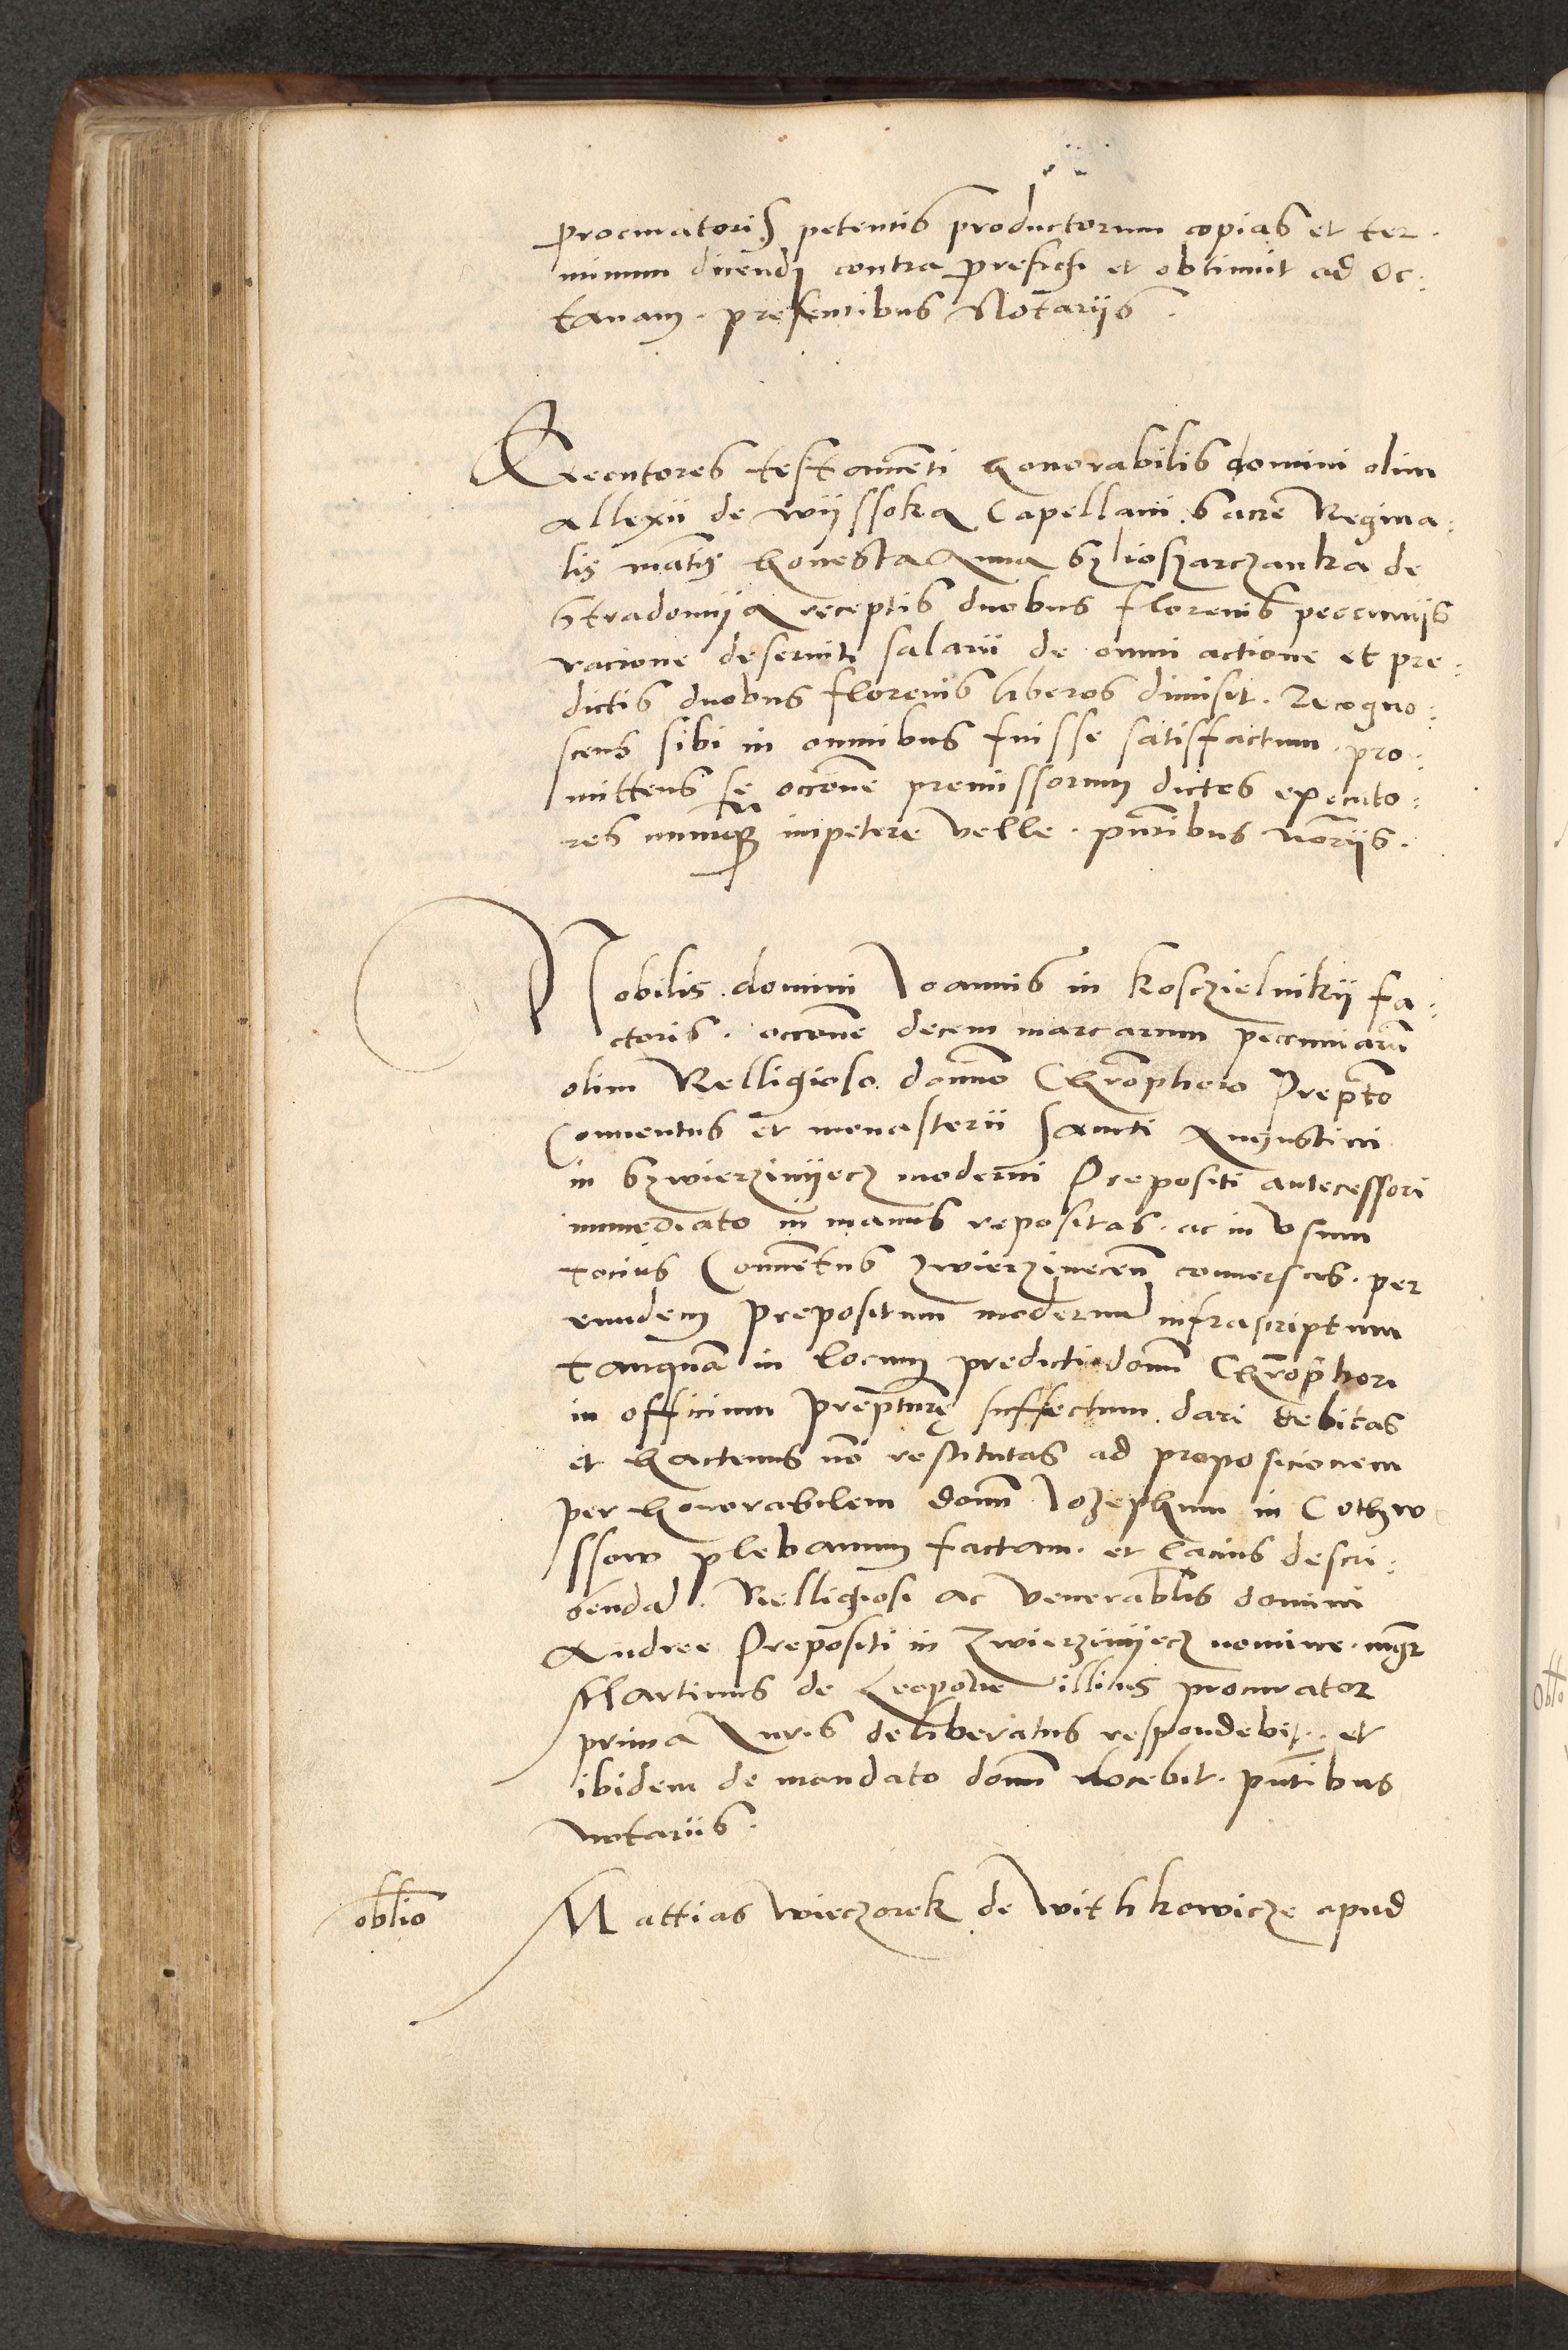 procuratoris petentis productorum copias et ter.
minum dicendi contra prefigi et obtinuit ad oc:
tavam. presentibus Notariis.
Executores testamenti honorabilis domini olim
Allexii de Wyssoka Capellani Sacre Regina:
lis mātis honesta Anna Szlioszarczanka de
Stradomya receptis duobus florenis peccuniis
racione deserviti salarii de omni actione et pre:
dictis duobus florenis liberos dimisit. Recogno:
scens sibi in omnibus fuisse satisfactum. pro:
mittens se occōne premissorum dictos executo:
res numquam impetere velle. pn̄tibus no̅riis.
Nobilis domini Joannis in Kosczielnikii fa:
ctoris. occōne decem marcarum peccuniarū
olim Relligioso dom̄o Chr̄ophoro Prep̄to
Conventus et monasterii Sancti Augustini
in Szwierziniyecz moderni Prepositi antecessori
immediato in manus repositas. ac in usum
tocius Conve̅tus Zwierzinecen̄ conversas. per
eundem prepositum modernū infrascriptum
tanquā in locum predicti dom̄ Chr̄ophori
in officium prep̄turę suffectum dari debitas
et hactenus nō restitutas ad proposicionem
per honorabilem dom̄ Jozephum in Cothzw
ssow plebanum factam. et lacius descri:
bendā. Relligiosi ac venerabilis domini
Andree Prepositi in Zwierziniyecz nomine. mgr̄
Martinus de Leopoli illius procurator
prima Iuris deliberatus respondebit. et
ibidem de mandato dom̄ docebit. pn̄tibus
notariis.
oblio
Mattias Wieczorek de Withkowicze apud